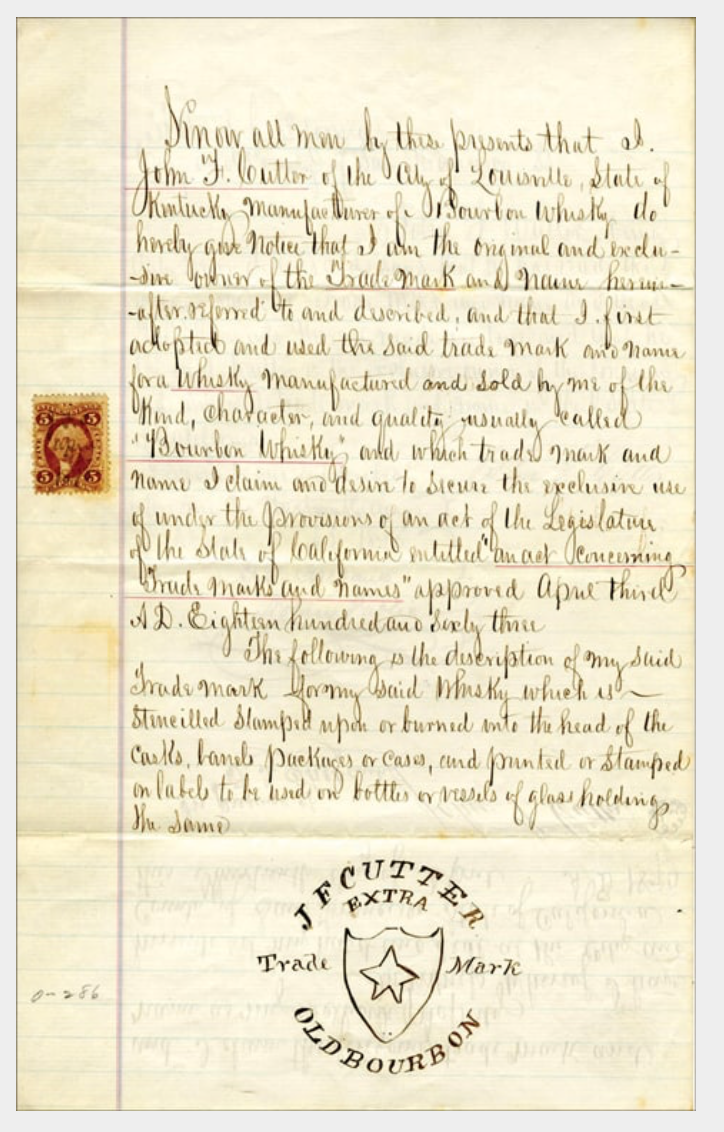 Know all men by these presents that I.
John F. Cutter of the City of Louisville, State of
Kentucky Manufacturer of Bourbon Whisky, do
hereby give Notice that I am the original and exclu-
-sive owner of the Trade Mark and Name herein-
-after referred to and described, and that I first
adopted and used the said trade mark and name
for a Whisky Manufactured and Sold by me of the
Kind, Character, and quality usually called
"Bourbon Whisky" and which trade mark and
name I claim and desire to secure the exclusive use
of under the provisions of an act of the Legislature
of the State of California entitled "an act concerning
Trade Marks and Names" approved April third
A D. Eighteen hundred and Sixty three
The following is the description of my said
Trade mark for my said Whisky which is
Stencilled Stamped upon or burned into the head of the
casks, barrels packages or cases, and printed or Stamped
on labels to be used on bottles or vessels of glass holding
the same
J F CUTTER
EXTRA
Trade Mark
OLD BOURBON
5 5
5 5
0-286